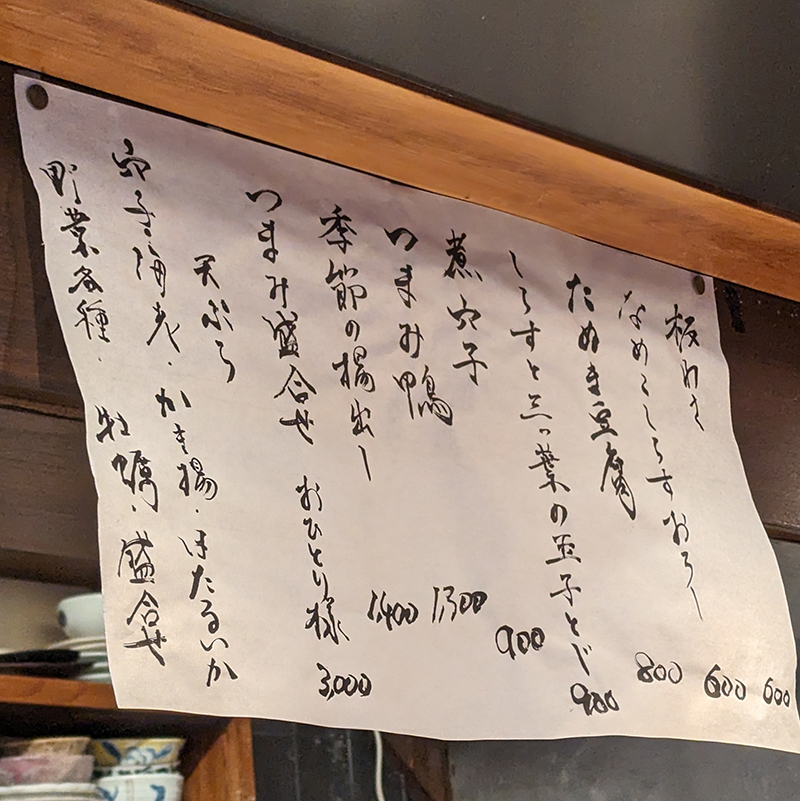 板わさ 600
なめこしらすおろし 600
たぬき豆腐 800
しらすと三つ葉の玉子とじ 900
煮穴子 900
つまみ鴨 1,300
季節の揚出し 1,400
つまみ盛合せ おひとり様 3,000
天ぷら
穴子・海老・かき揚・ほたるいか
野菜各種・牡蠣・盛合せ